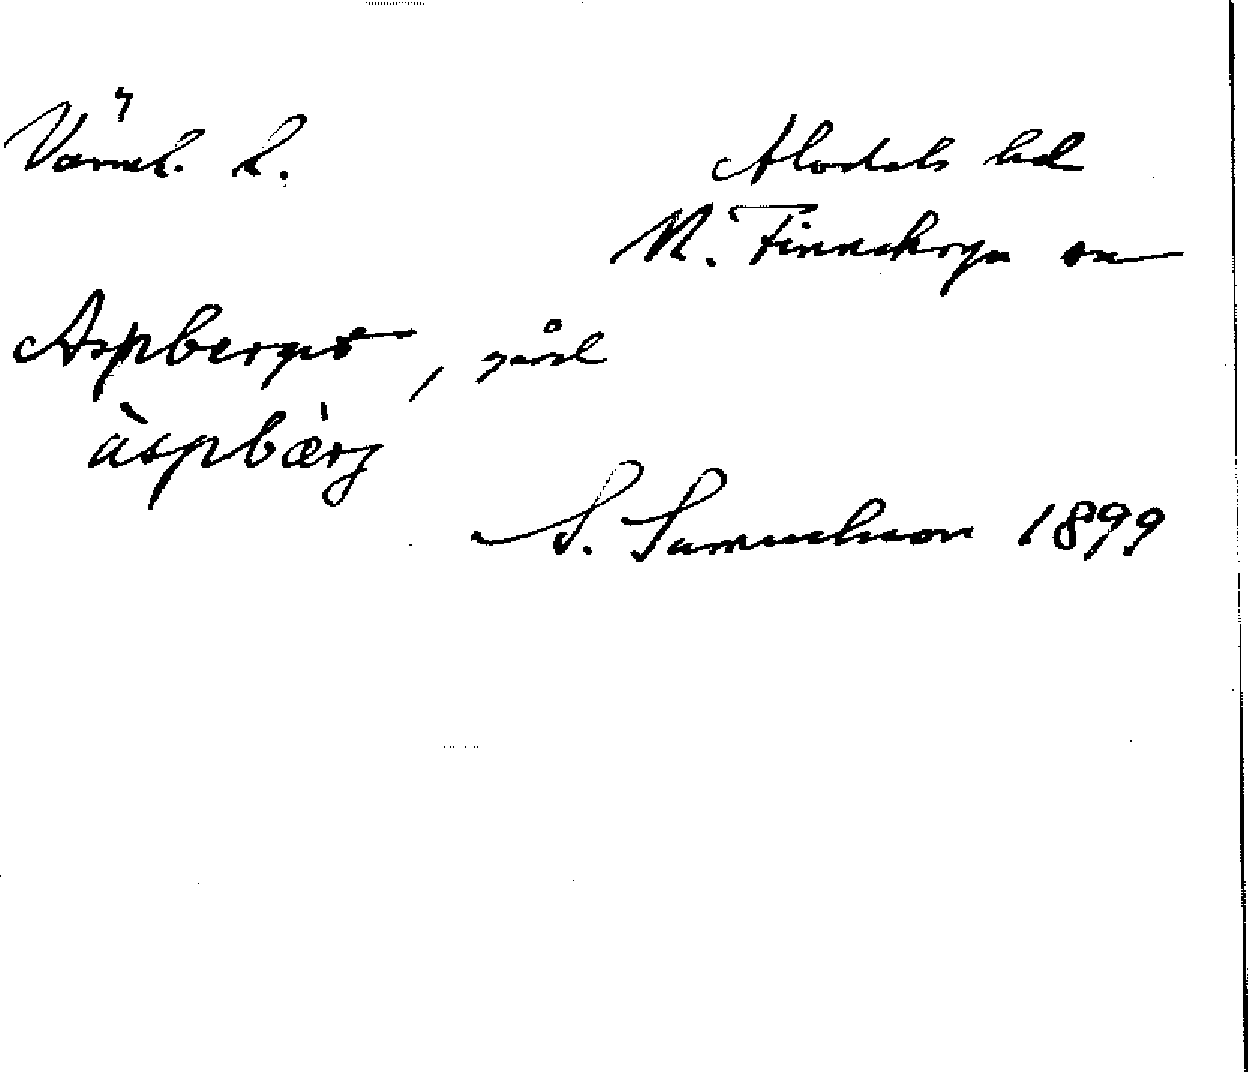 Värml. l.
Älvdals hd
N. Finnskoga sn
Aspberget, gård
àspbæ̀rj
S. Samuelsson 1899